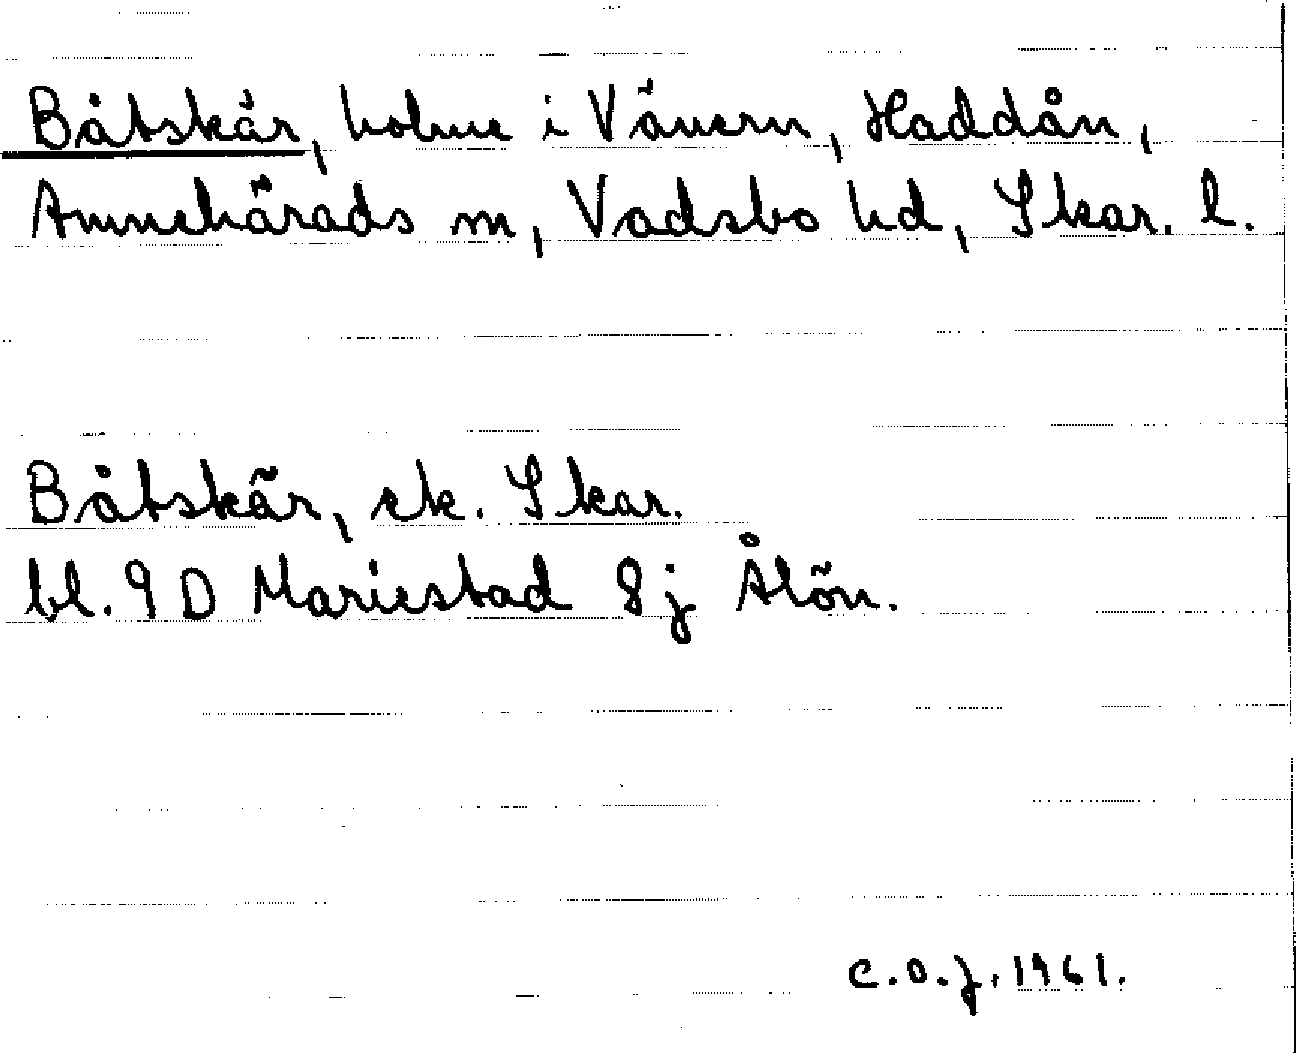 Båtskär, holme i Vänern, Haddån,
Amnehärads sn, Vadsbo hd, Skar. l.
Båtskär, ek. Skar.
bl. 9 D Mariestad 8 j Ålön.
C.O.J. 1961.